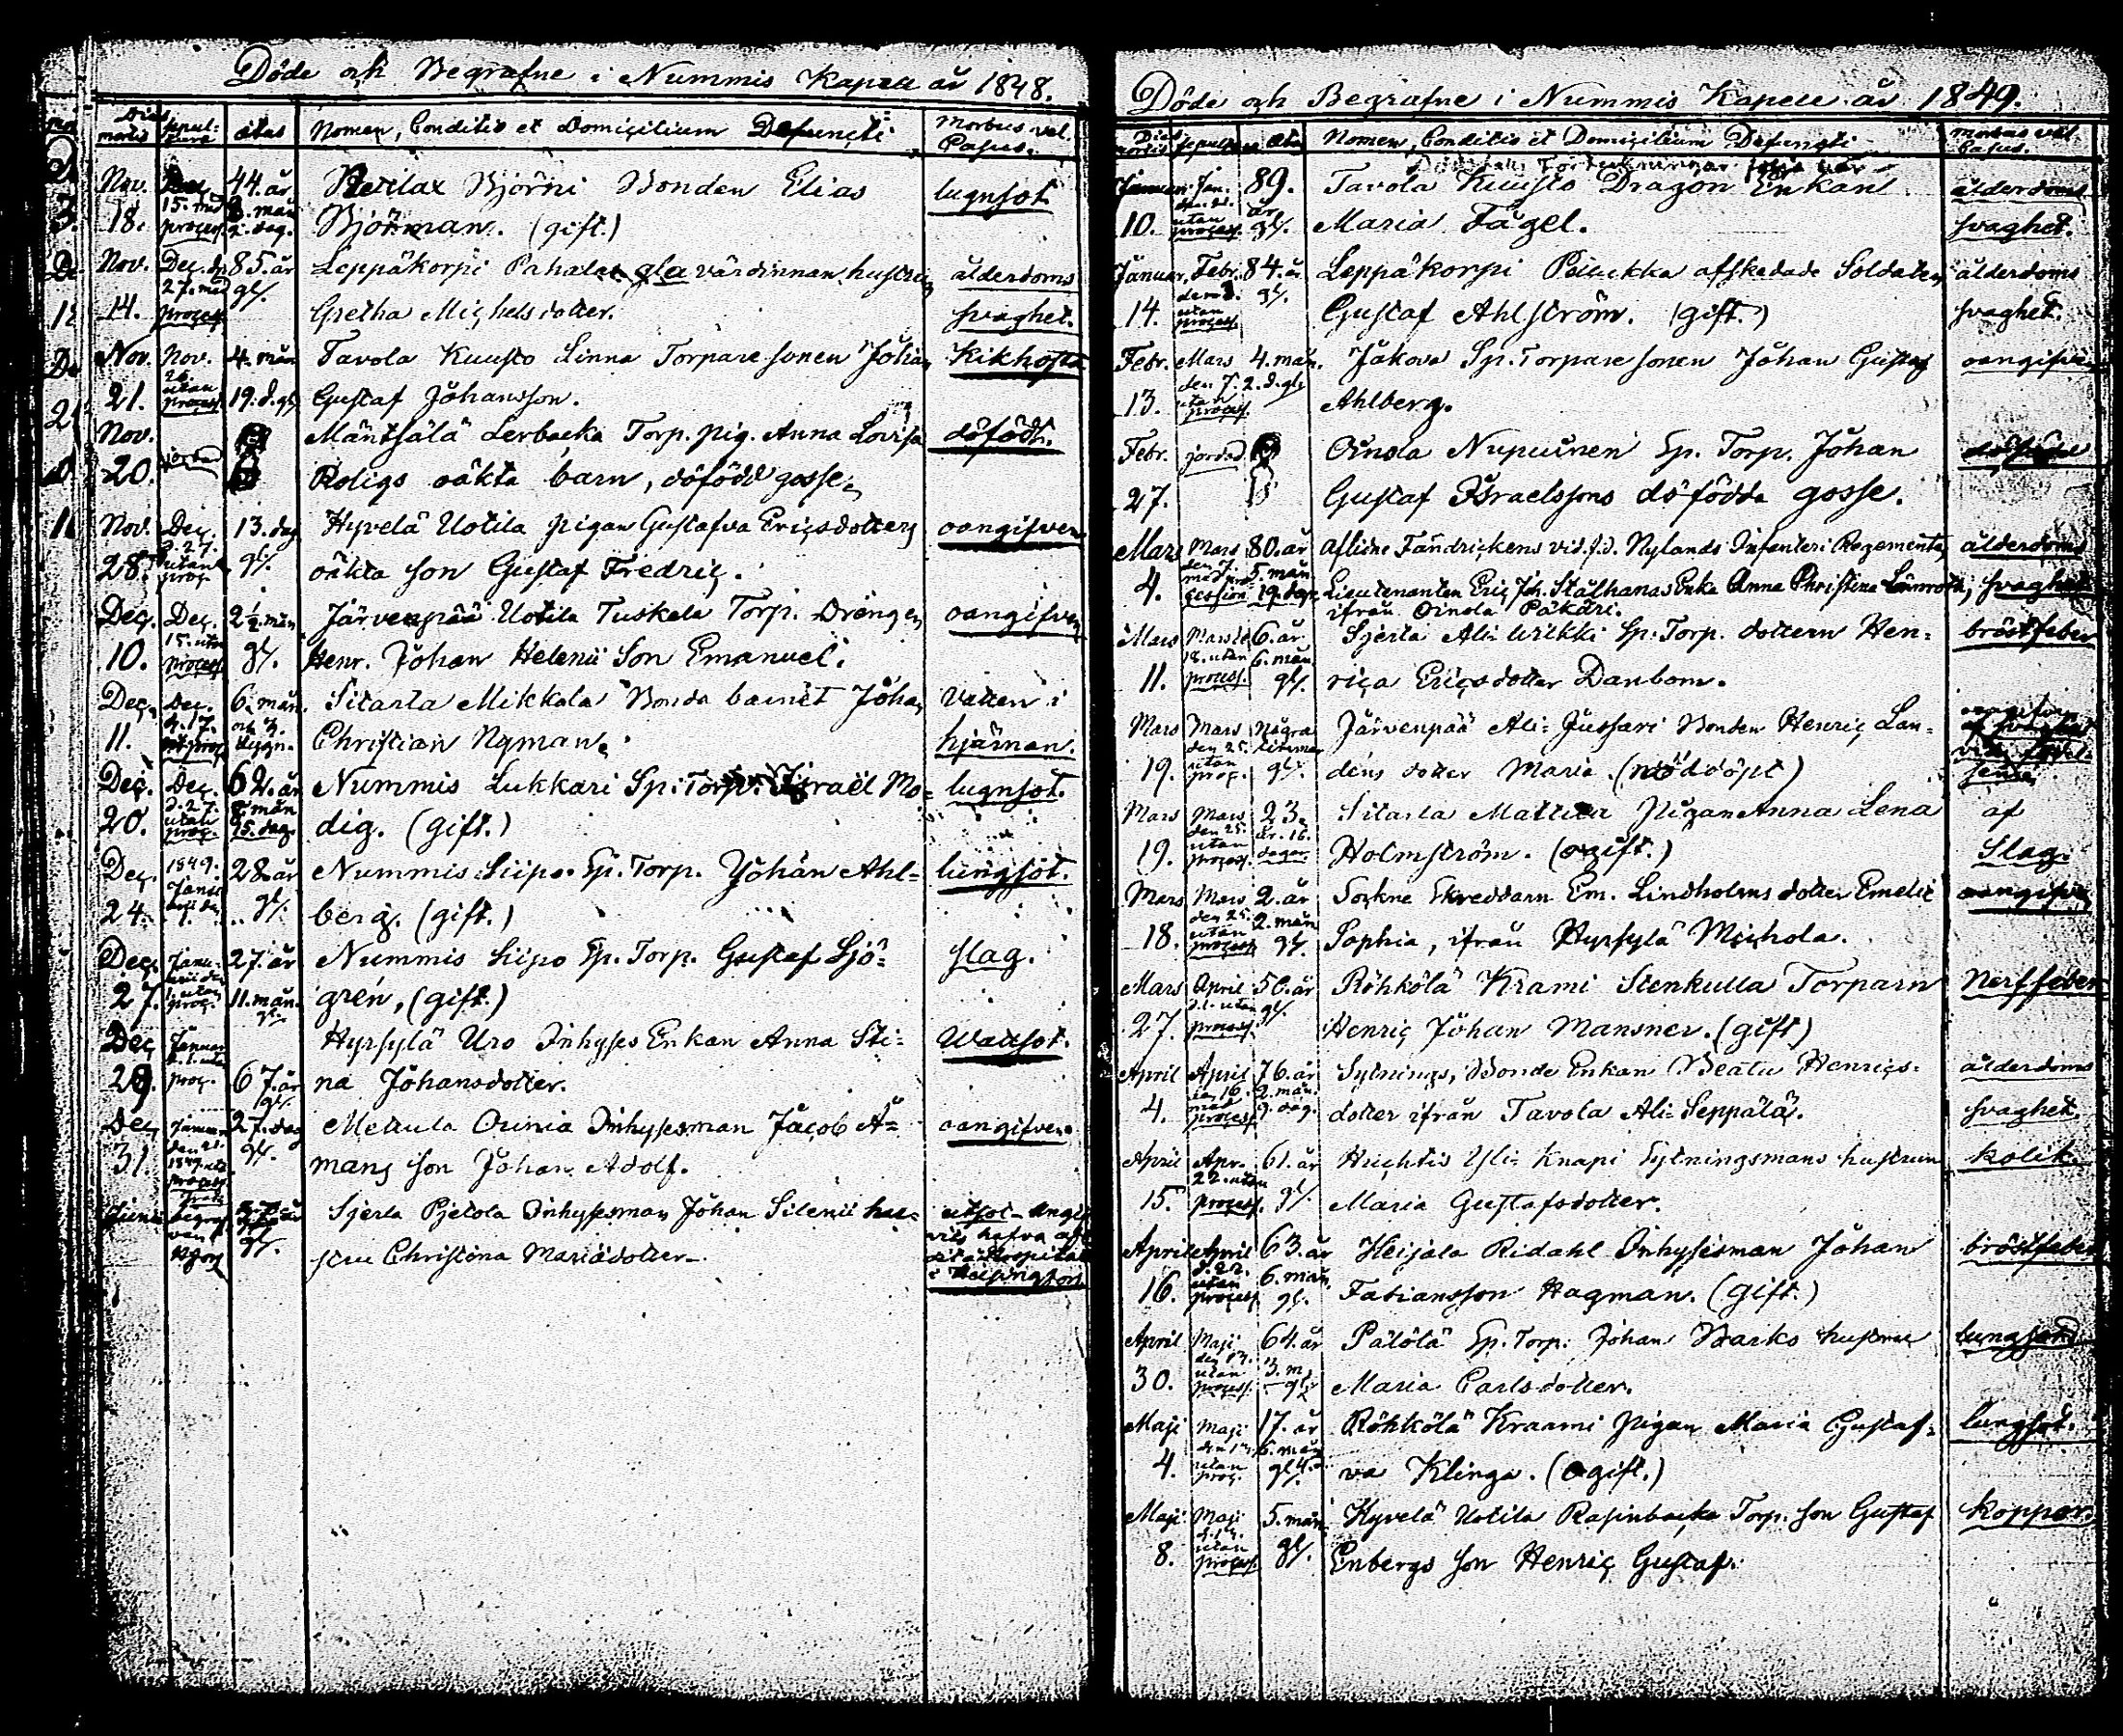 Döde och Begrafne i Nummis Kapell år 1848.
Dies mortis | sepulturæ | ætas | Nomen, Conditio et Domicilium Defuncti | Morbus vel Casus.
Nov. 18. | Dec. 15. med process | 44. år 2. dag. | Björni Bonden Elias
Björman. (gift.) | lugnsot
Nov. 14. | Dec. 27. med process | 85. år gl. | Leppäkorpi gla värdinnan hustru
Gretha Michelsdotter. | ålderdoms svaghet.
Nov. 21. | Nov. 26. utan process | 4. mån. 19. d. gl. | Tavola Kuusto Linna Torpare sonen Johan
Gustaf Johansson. | Kikhosta
Nov. 20. | jordad | Mäntsälä Lerbacka Torp. pig. Anna Lovisa
Roligs oäkta barn, döfödd gosse. | dödfödt.
Nov. 28. | Dec. d. 27. utan proc. | 13. dag. gl. | Hyvelä Uotila pigan Gustafva Ericsdotters
oäkta son Gustaf Fredric. | oangifven
Dec. 10. | Dec. 15. utan process | 2½ mån gl. | Järvenpää Uotila Tuskala Torp. Drengen
Henr. Johan Helenii Son Emanuel. | oangifven
Dec. 11. | Dec. d. 17. proc. | 6. mån. och 3. dygn. | Sitarla Mikkola Bonda barnet Johan
Christian Nyman. | Vatten i hjärnan.
Dec. 20. | Dec. d. 27. utan proc. | 62. år 8. mån 15. dag. | Nummis Lukkari Sp. Torp. Israël Mo=
dig. (gift.) | lugnsot.
Dec. 24. | 1849. Januarii den 1. | 28. år gl. | Nummis Siipo Sp. Torp. Johan Ahl=
berg. (gift.) | lungsot.
Dec. 27. | Januarii den 1. utan proc. | 27. år 11. mån. gl. | Nummis Siipo Sp. Torp. Gustaf Sjö=
grén, (gift.) | slag.
Dec. 29. | Januar d. 1. utan proc. | 67. år gl. | Hyrsylä Uro Inhyses Enkan Anna Sti=
na Johansdotter. | Watsot.
Dec. 31. | Januar den 21. 1849. utan process | 27. dag gl. | Metkula Ounia Inhysesman Jacob Å=
mans son Johan Adolf. | oangifven.
Junii | Sjerla Pjetola Inhysesman Johan Silenii hu=
stru Christina Mariädotter. | hafva i Helsingfors

Döde och Begrafne i Nummis Kapell år 1849.
Dies mortis | sepulturæ | ætas | Nomen, Conditio et Domicilium Defuncti | Morbus vel Casus.
Januar. 10. | Jan. utan process | 89. år gl. | Tavola Kuusto Dragon Enkan
Maria Fågel. | ålderdoms svaghet.
Januar. 14. | Febr. utan process | 84. år gl. | Leppäkorpi afskedade Soldaten
Gustaf Ahlström. (gift.) | ålderdoms svaghet.
Febr. 13. | Mars den 7. utan process. | 4. mån. 2. d. gl. | Jakova Sp. Torpare sonen Johan Gustaf
Ahlberg. | oangifven
Febr. 27. | jordad. | Oinola Nupunen Sp. Torp. Johan
Gustaf Israelssons döfödda gosse. | dödfödd
Mars 4. | Mars den 7. med procession | 80. år 5. mån 19. dag. | Aflidne Fändrickens vid f.d. Nylands Infanteri Regemente,
Lieutenanten Eric Joh. Stålhanas Enka Anna Christina Lönnroth,
ifrån Oinola Pakari. | ålderdoms svaghet
Mars 11. | Mars 18. utan process. | 6. år 6. mån gl. | Sjerla Ali Wikki Sp. Torp. dottern Hen=
rica Ericsdotter Danbom. | bröstfeber
Mars 19. | Mars den 25. utan proc. | några timmar gl. | Järvenpää Ali=Jussari Bonden Henric Lan=
déns dotter Maria. (nöddöpt) | oangifven af svaghet vid födelsen.
Mars 19. | Mars den 25. utan process. | 23. år. 16. dagar. | Sitarla Mattila Pigan Anna Lena
Holmström. (ogift.) | af Slag.
Mars 18. | Mars den 25. utan process | 2. år 2. mån gl. | Sockne Skreddarn Em. Lindholms dotter Emelie
Sophia, ifrån Hyrsylä Michola. | oangifven
Mars 27. | April d. 1. utan process. | 50. år gl. | Röhkölä Krami Stenkulla Torparn
Henric Johan Mansner. (gift) | Nerffeber
April 4. | April den 16. med process. | 76. år 2. mån. 9. dag. | Sytnings, Bonde Enkan Beata Henrics=
dotter ifrån Tavola Ali=Seppälä. | ålderdoms svaghet.
April 15. | Apr. 22. utan process. | 61. år gl. | Huchtis Yli=Knapi Sytningsmans hustrun
Maria Gustafsdotter. | kolik
April 16. | April d. 22. utan process | 63. år 6. mån. gl. | Heijala Ridahl Inhysesman Johan
Fabiansson Hagman. (gift.) | bröstfeber
April 30. | Maji den 13. utan process. | 64. år 3. m. gl. | Pälölä Sp. Torp. Johan Barks hustru
Maria Carlsdotter. | lungsot
Maji 4. | Maji den 13. utan proc. | 17. år 6. mån gl. | Röhkölä Kraami Pigan Maria Gustaf=
va Klinga. (ogift.) | lungsot.
Maji 8. | Maji utan process | 5. mån. gl. | Hyvelä Uotila Rasinbacka Torp. son Gustaf
Enbergs son Henric Gustaf. | koppor.